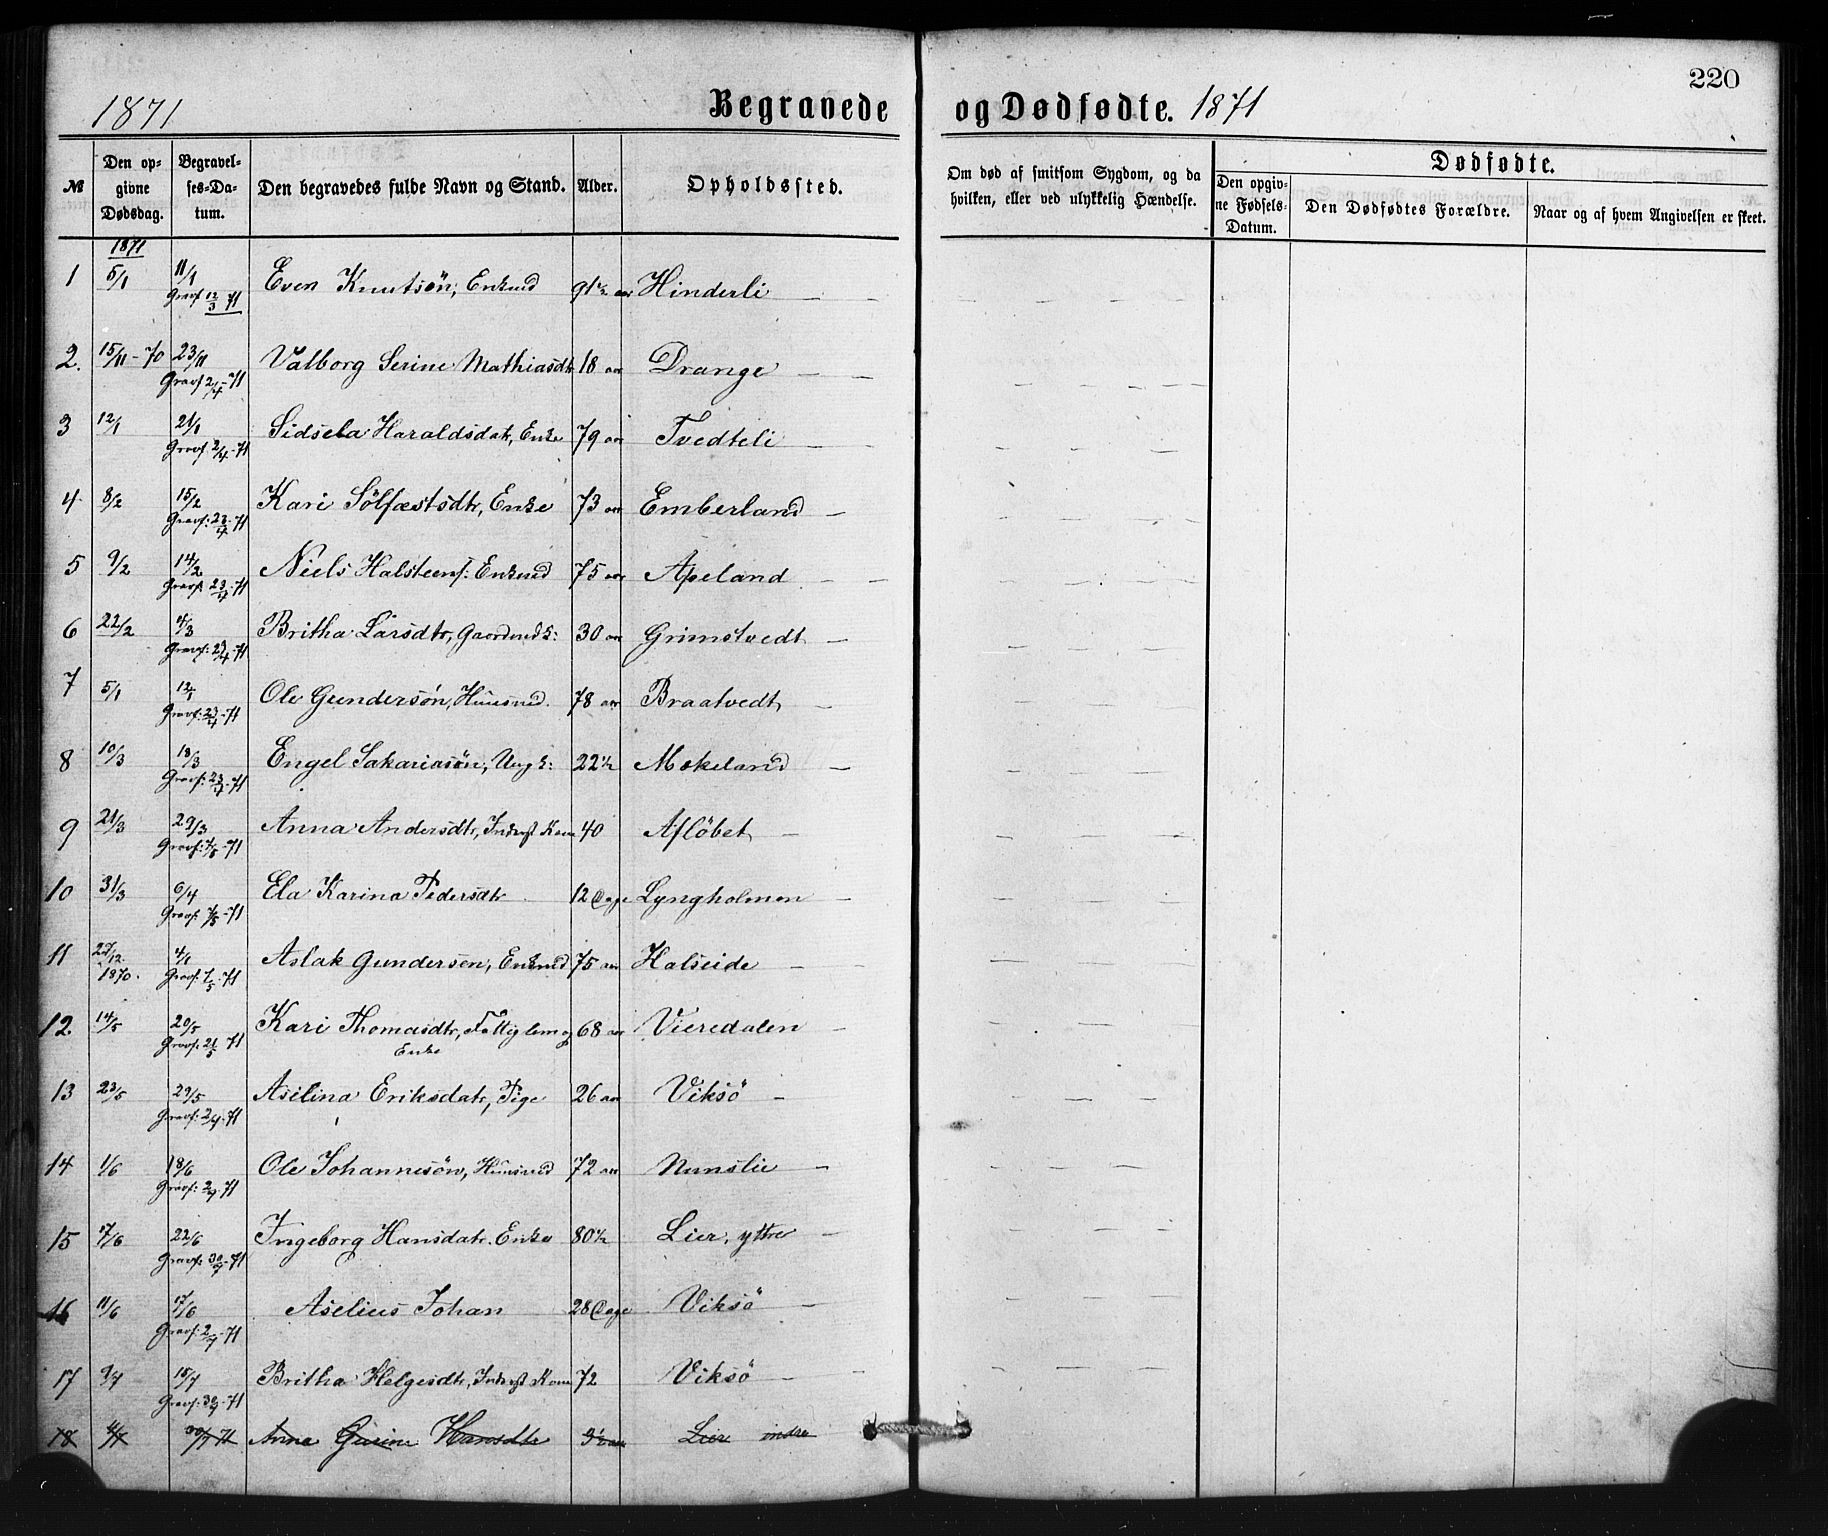 220
1871 Begravede og Dødfødte. 1871
№ Den opgivne Dødsdag. Begravelses-Datum. Den begravedes fulde Navn og Stand. Alder. Opholdssted. Om død af smitsom Sygdom, og da hvilken, eller ved ulykkelig Hændelse. Dødfødte. Den opgivne Fødsels-Datum. Den Dødfødtes Forældre. Naar og af hvem Angivelsen er skeet.
1871
1 5/1 11/1 Even Knutsön, Enkmd 91½ aar Hinderli
Gravf 12/3 71
2. 15/11-70 23/11 Valborg Serine Mathiasdtr 18 aar Drange
Gravf 2/4-71
3 12/1 21/1 Sidsela Haraldsdatr, Enke 79 aar Tvedteli
Gravf 2/4-71
4 8/2 15/2 Kari Sölfæstsdtr, Enke 73 aar Emberland
Gravf: 23/4-71
5 9/2 14/2 Niels Halsteens: Enkmd 75 aar Apeland
Gravf: 23/4-71
6 22/2 4/3 Britha Larsdtr, Gaardmd k: 30 aar Grimstvedt
Gravf: 23/4-71
7 5/1 12/1 Ole Gundersön, Huusmd. 78 aar Braatvedt
Gravf: 23/4-71
8 10/3 18/3 Engel Sakariasön, Ung k: 22½ Mokeland
Gravf: 23/4-71
9 21/3 29/3 Anna Andersdtr, Inderst Kone 40 Aflöbet
Gravf: 7/5-71
10 31/3 6/4 Ela Karina Pedersdtr 12 Dage Lyngholmen
Gravf: 7/5-71
11 /12 1870. 4/1 Aslak Gundersen, Enkmd 75 aar Halseide
Gravf: 7/5-71
12. 14/5 20/5 Kari Thomasdtr, Fattiglem og 68 aar Vieredalen
Gravf: 21/5 71 Enke
13 23/5 29/5 Aselina Eriksdatr, Pige 26 aar Viksö
Gravf: 2/7-71
14 1/6 18/6 Ole Johannesön, Huusmd 72 aar Nunslie
Gravf: 2/7-71
15 17/6 22/6 Ingeborg Hansdatr. Enke 80½ Lier, yttre
Gravf: 30/7-71
16 11/6 17/6 Aselius Johan 28 Dage Viksö
Gravf: 2/7-71
17 9/7 15/7 Britha Helgesdtr, Inderst Kone 72 Viksö
Gravf: 30/7-71
18 30/7 71 Anna Gurine Hansdtr Lier indre